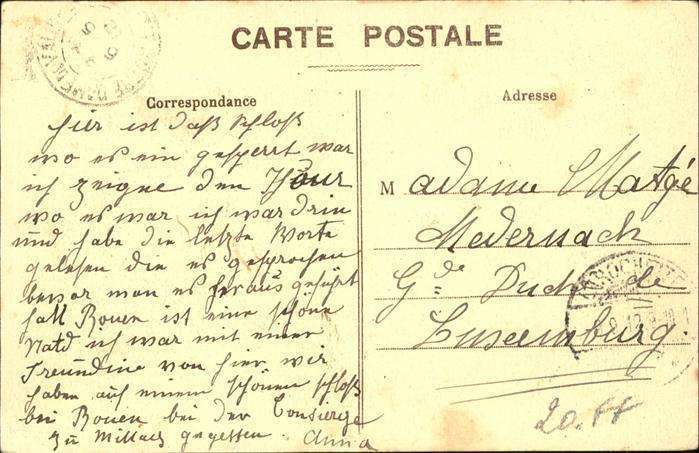 CARTE POSTALE
Correspondance
hier ist daß Schloß
wo es ein gesperrt war
ich zeigne den Thour
wo es war ich war drin
und habe die letzte Worte
gelesen die es gesprochen
bevor man es heraus geführt
hatt Rouen ist eine schöne
Statd ich war mit einer
Freundine von hier wir
haben auf einem schönen Schloß
bei Rouen bei der Consierge
zu Mittach gegessen. Anna
Adresse
Madame Matgé
Medernach
Gde Duché de
Luxemburg.
20. ff